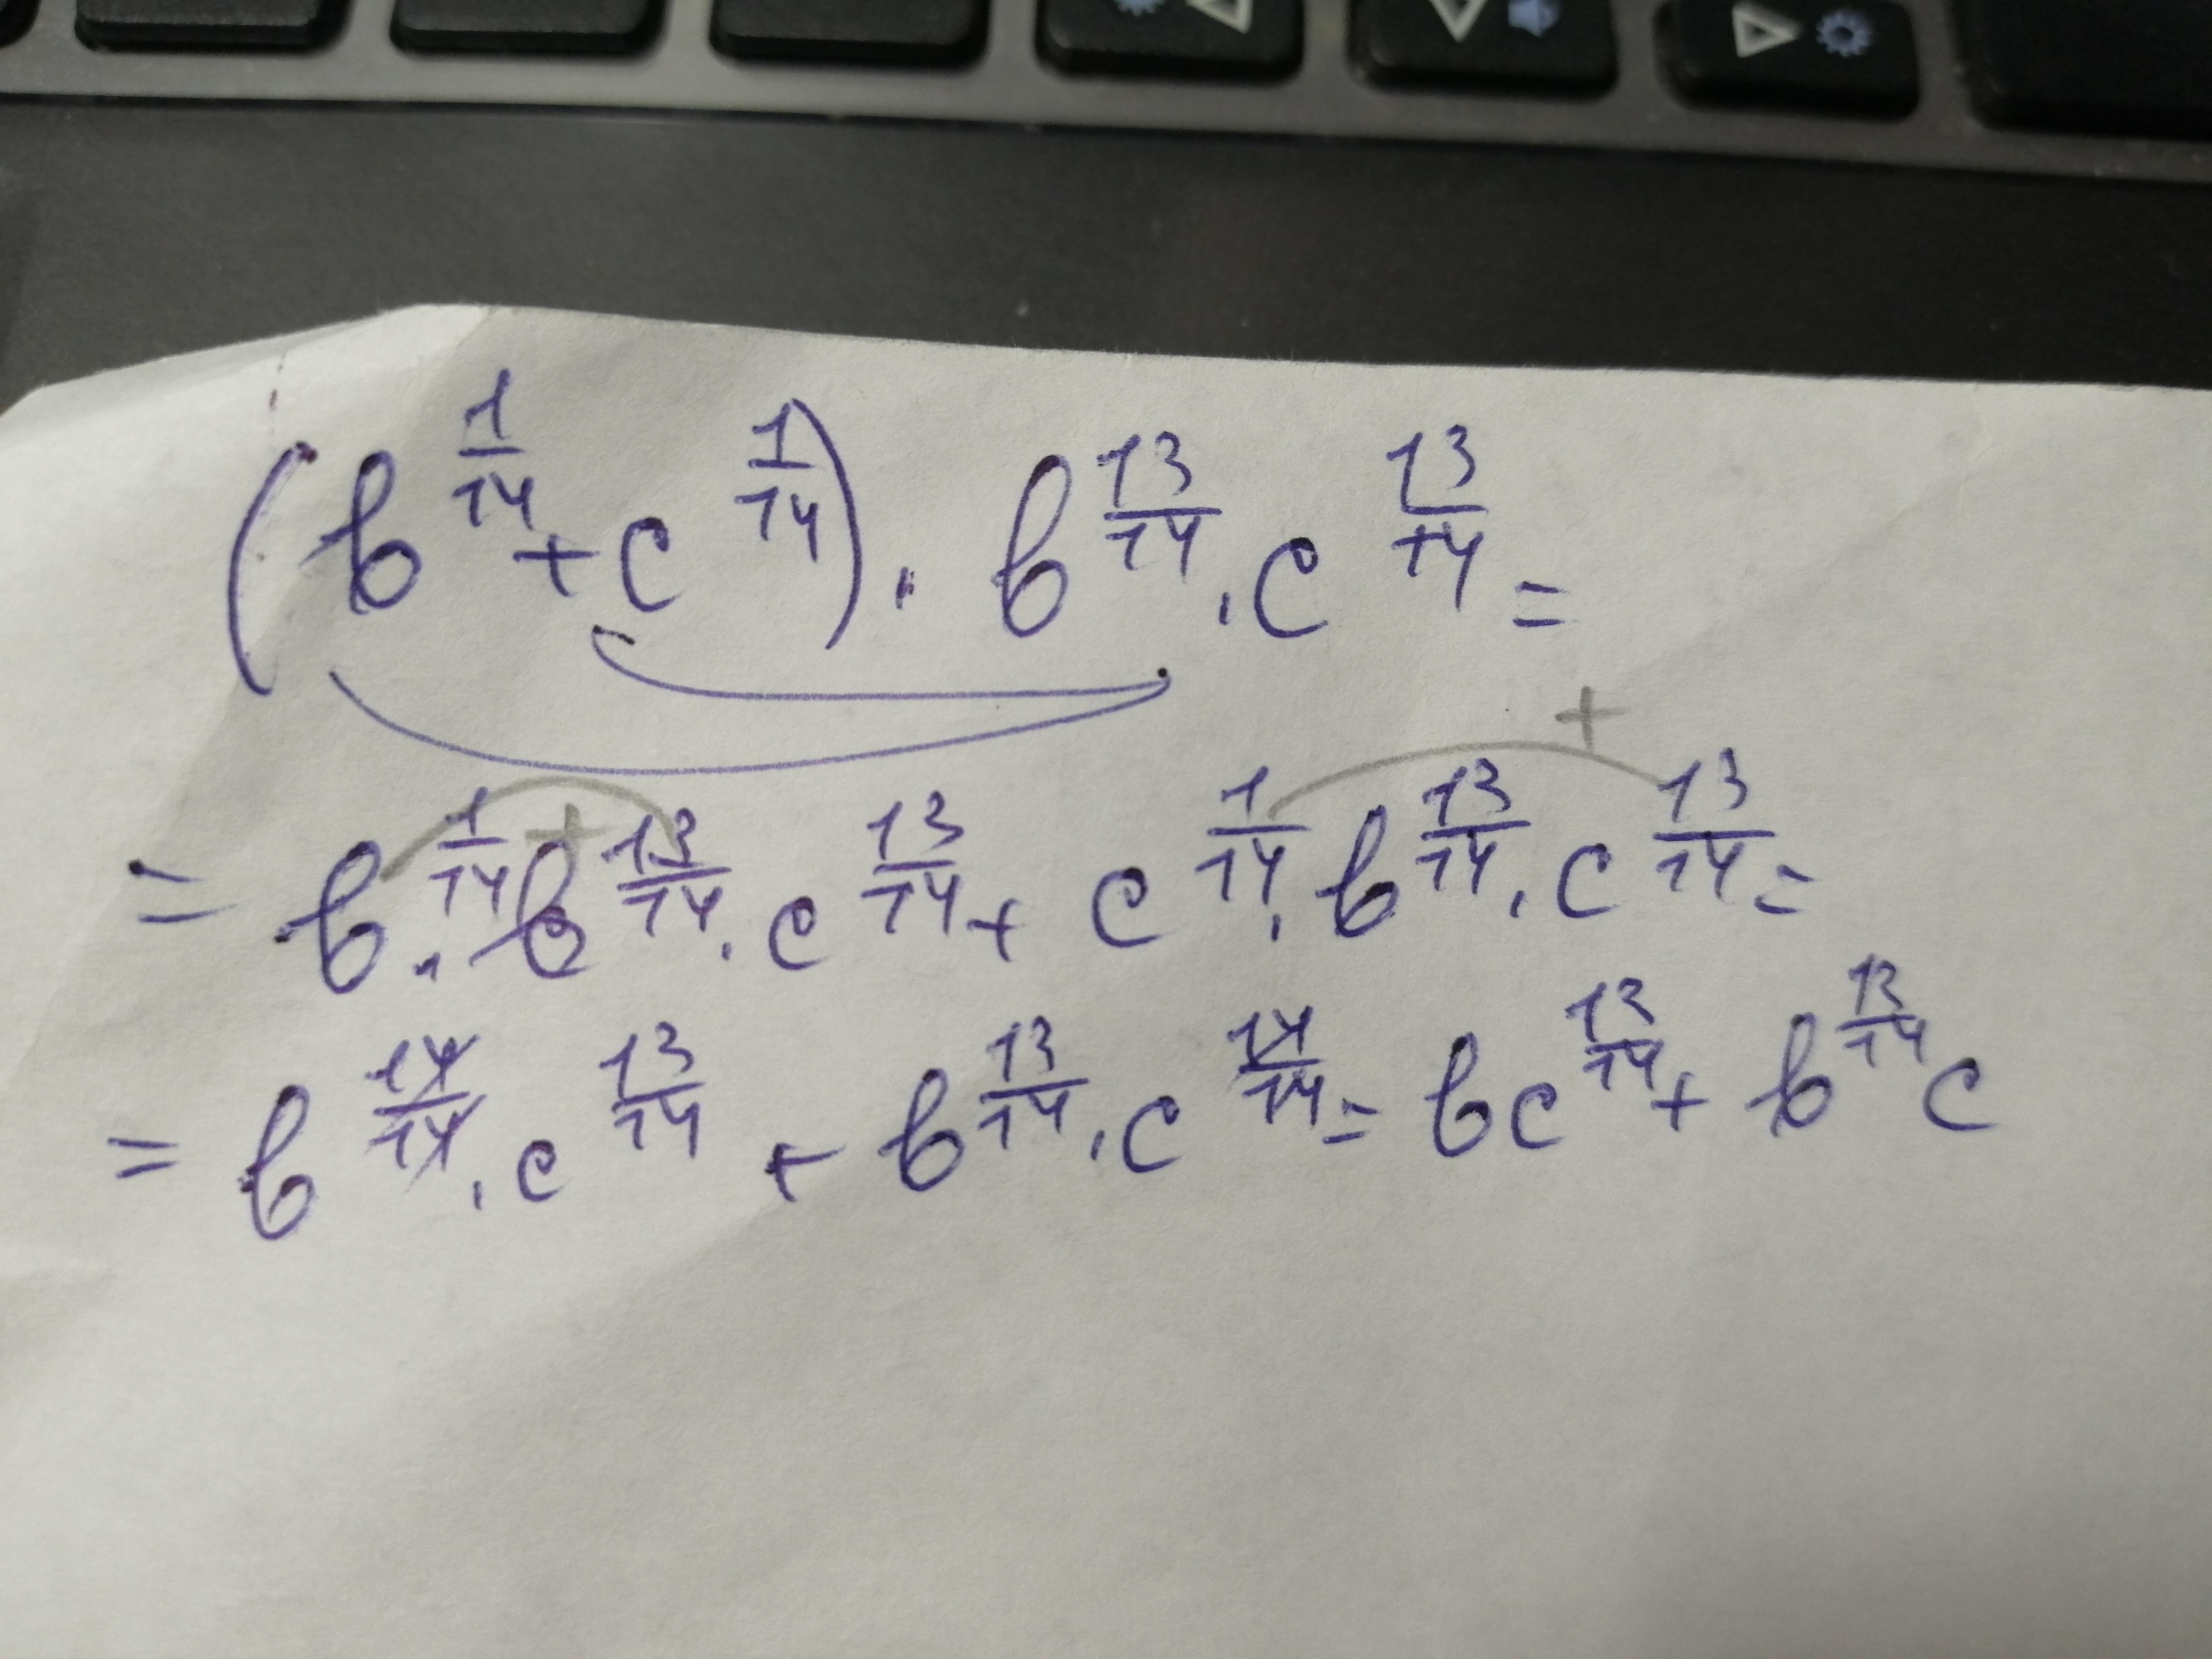 (b^{1/14} + c^{1/14}) · b^{13/14} · c^{13/14} =
= b^{1/14} · b^{13/14} · c^{13/14} + c^{1/14} · b^{13/14} · c^{13/14} =
= b^{14/14} · c^{13/14} + b^{13/14} · c^{14/14} = bc^{13/14} + b^{13/14}c